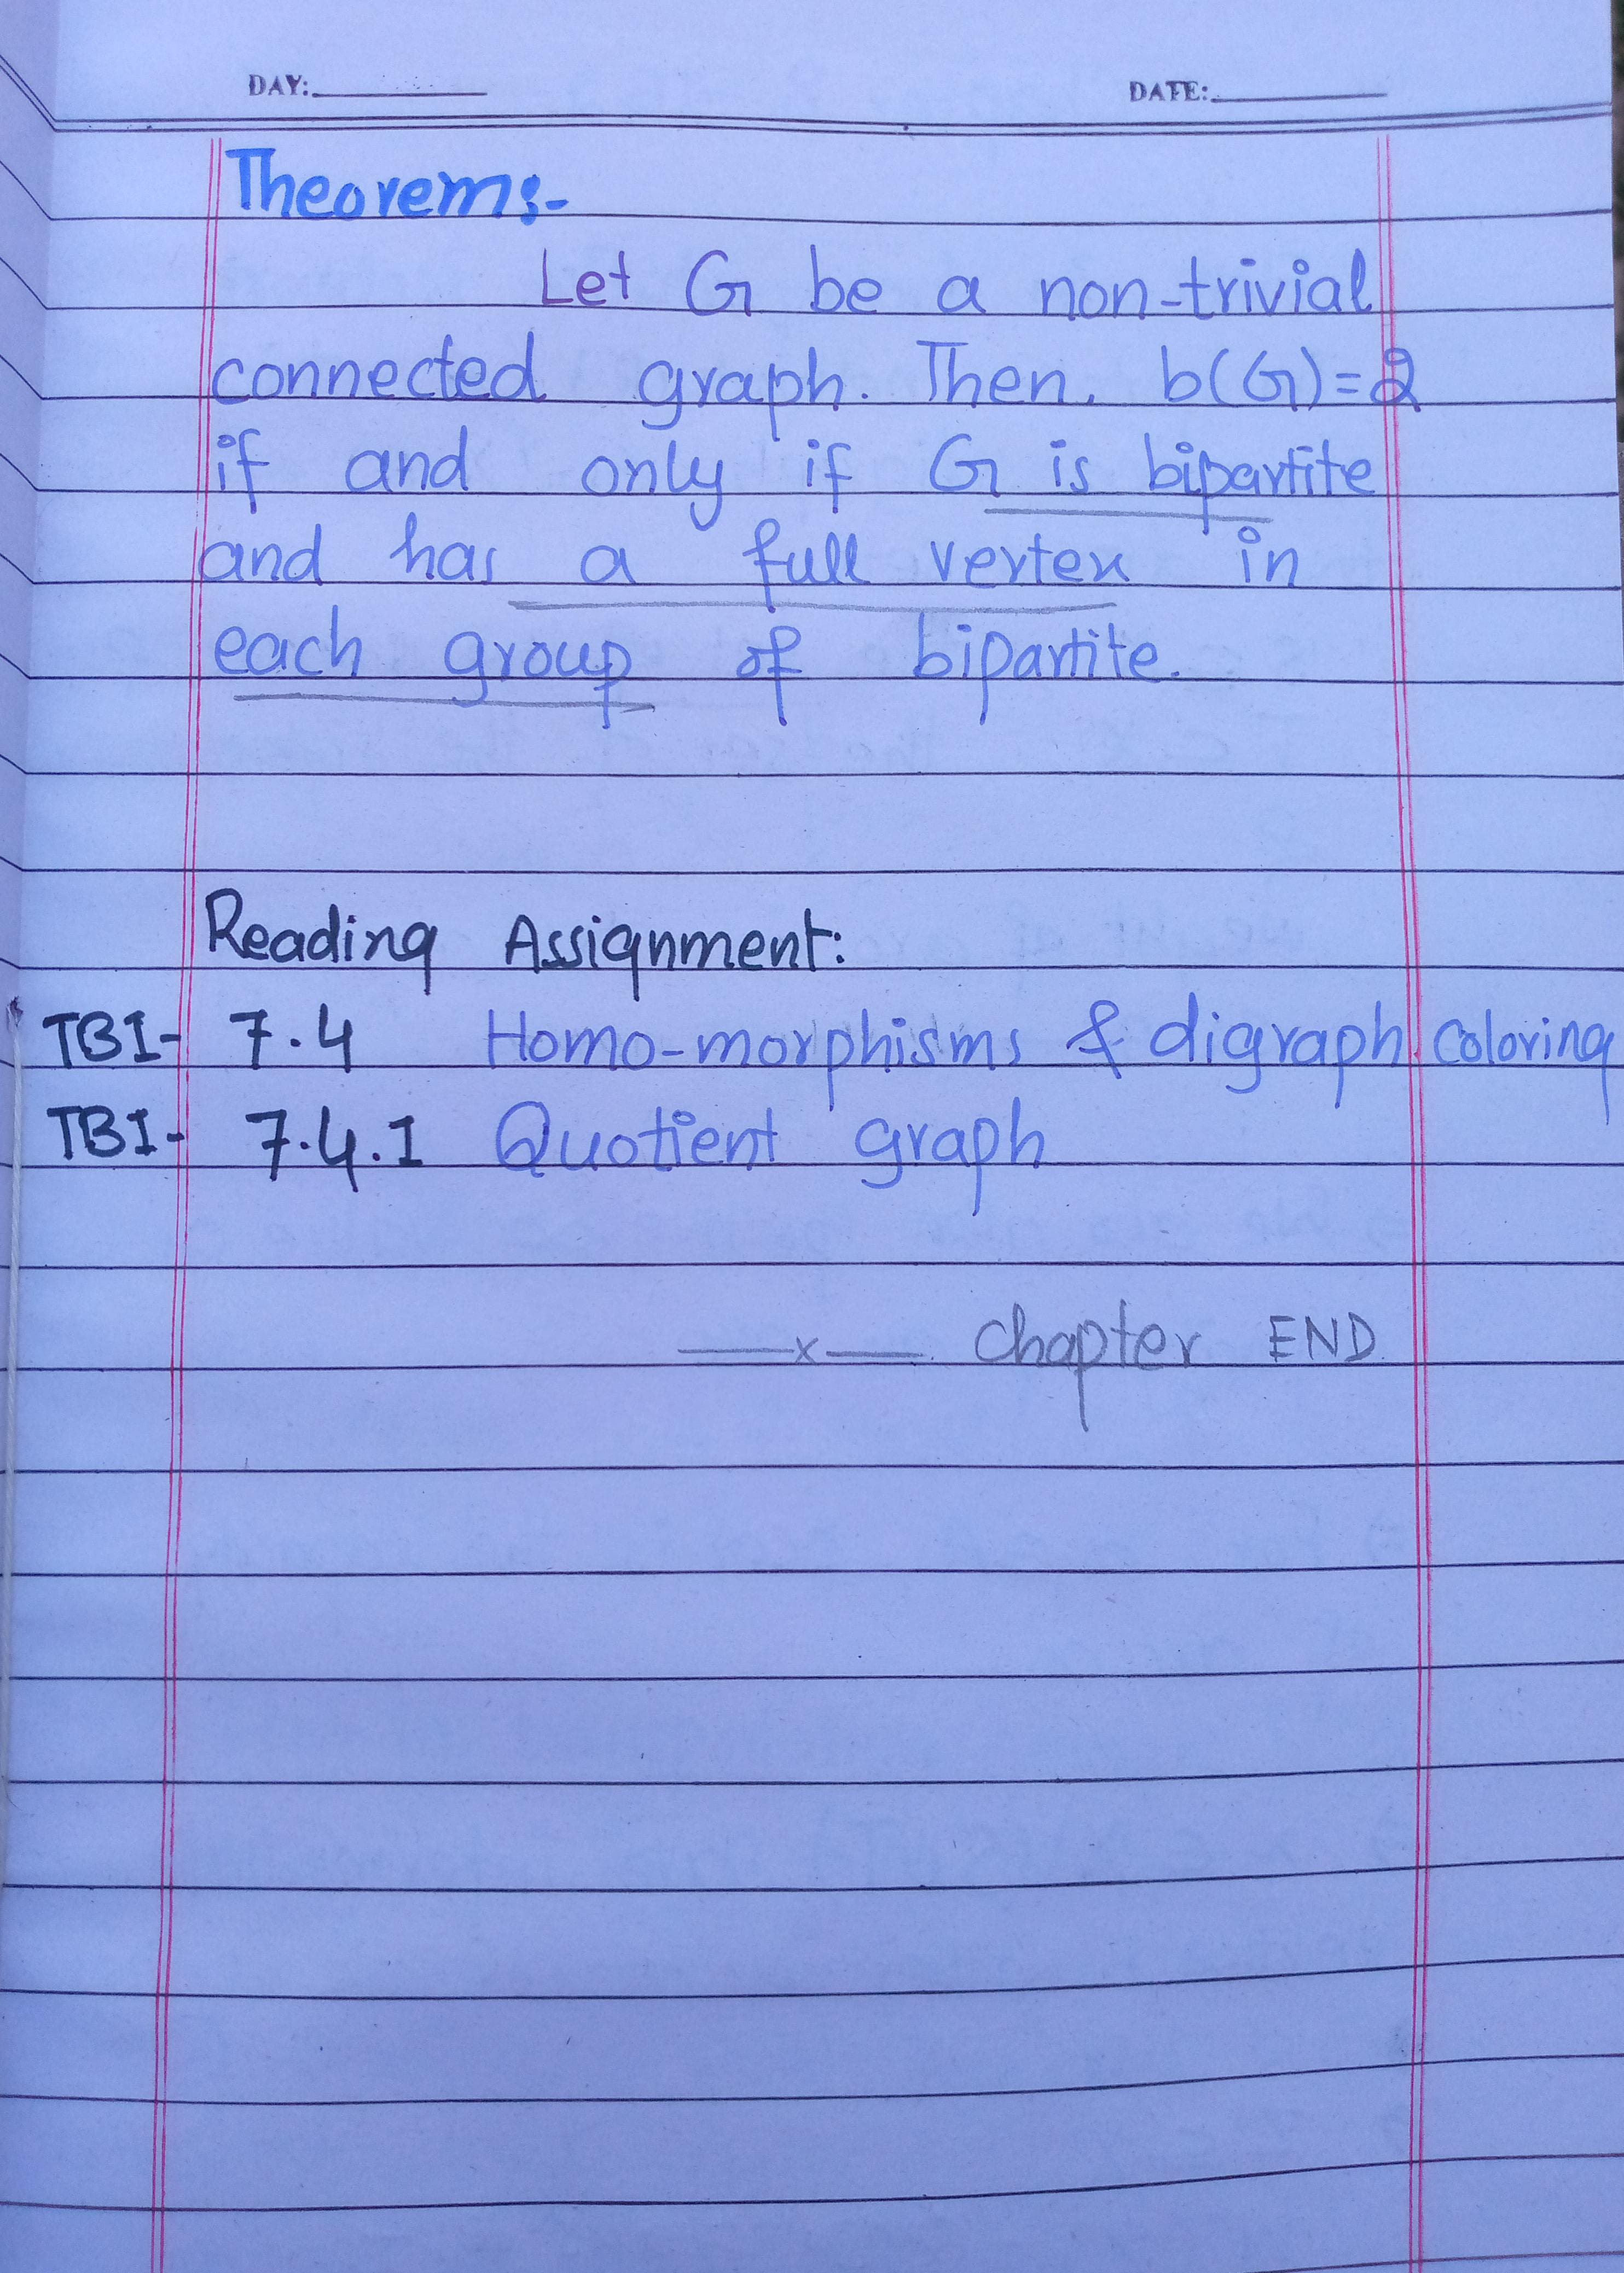 DAY:
DATE:
Theorem:-
Let G be a non-trivial
connected graph. Then, b(G)=2
if and only if G is bipartite
and has a full vertex in
each group of bipartite.
Reading Assignment:
TB1- 7.4 Homo-morphisms & digraph coloring
TB1- 7.4.1 Quotient graph
——x—— chapter END